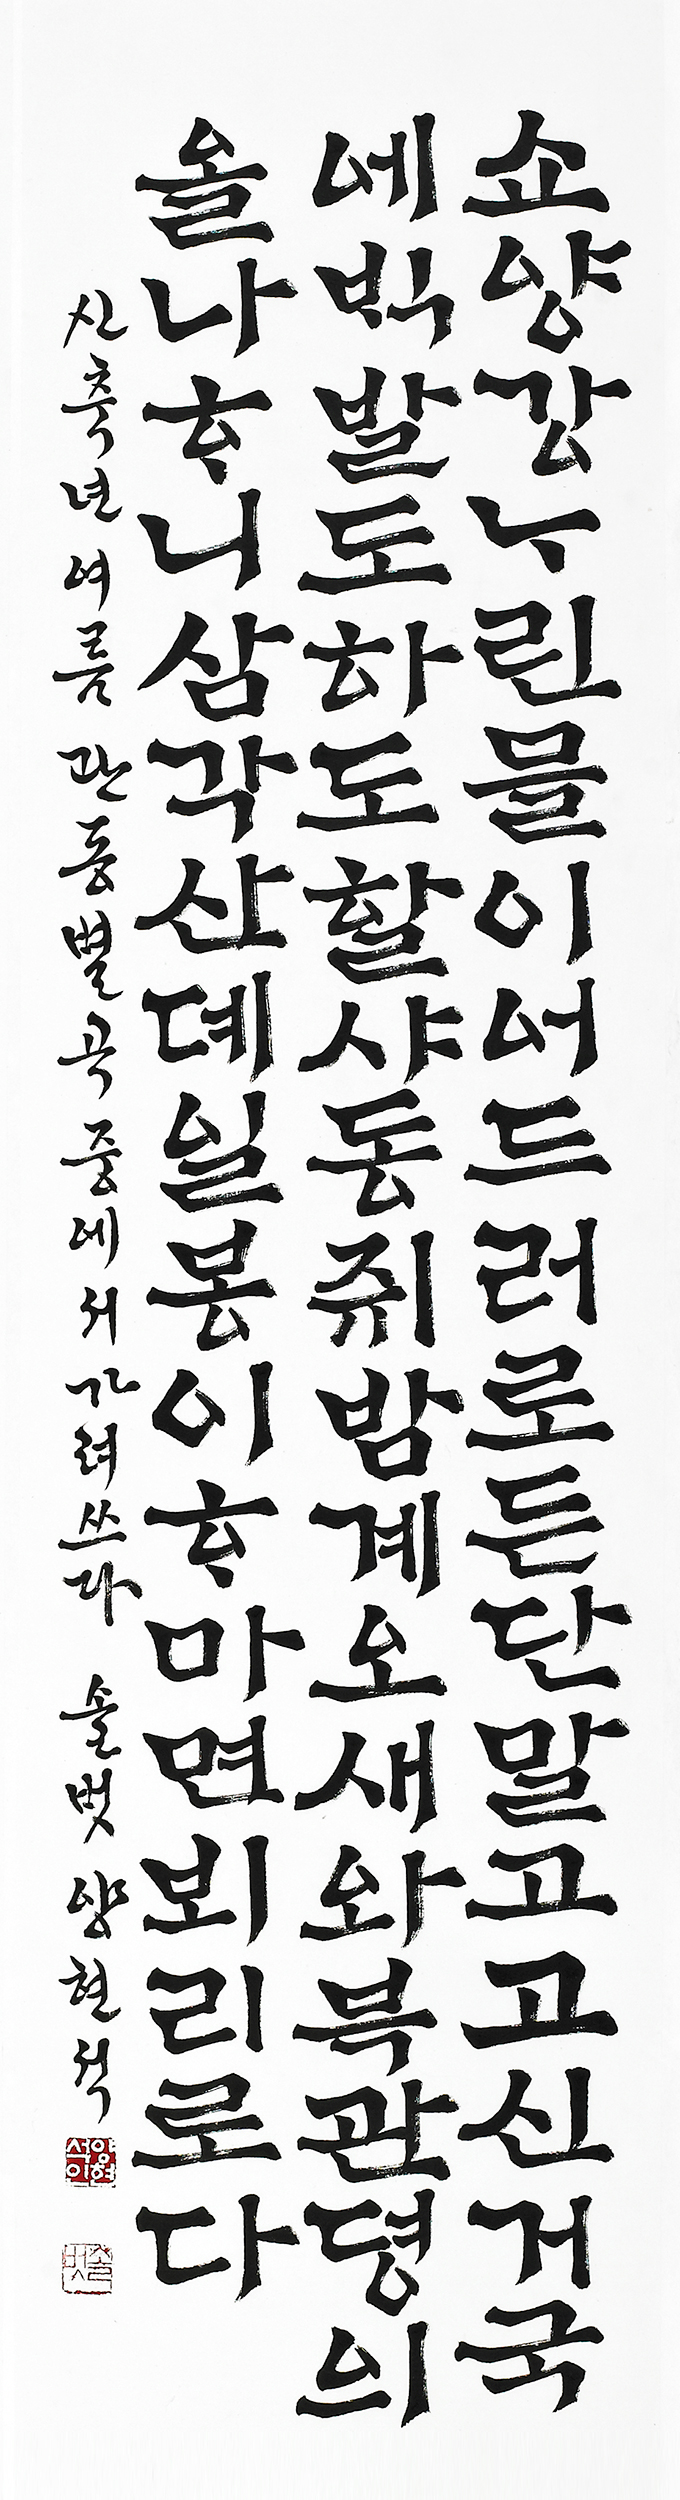 소양강ᄂᆞ린믈이어드러로든단말고고신거국
에ᄇᆡᆨ발도하도할샤동쥐밤계오새와븍관뎡의
올나ᄒᆞ니삼각산뎨일봉이ᄒᆞ마면뵈리로다
신축년여름 관동별곡중에서 가려쓰다 솔벗 양현석
양현석인
솔벗